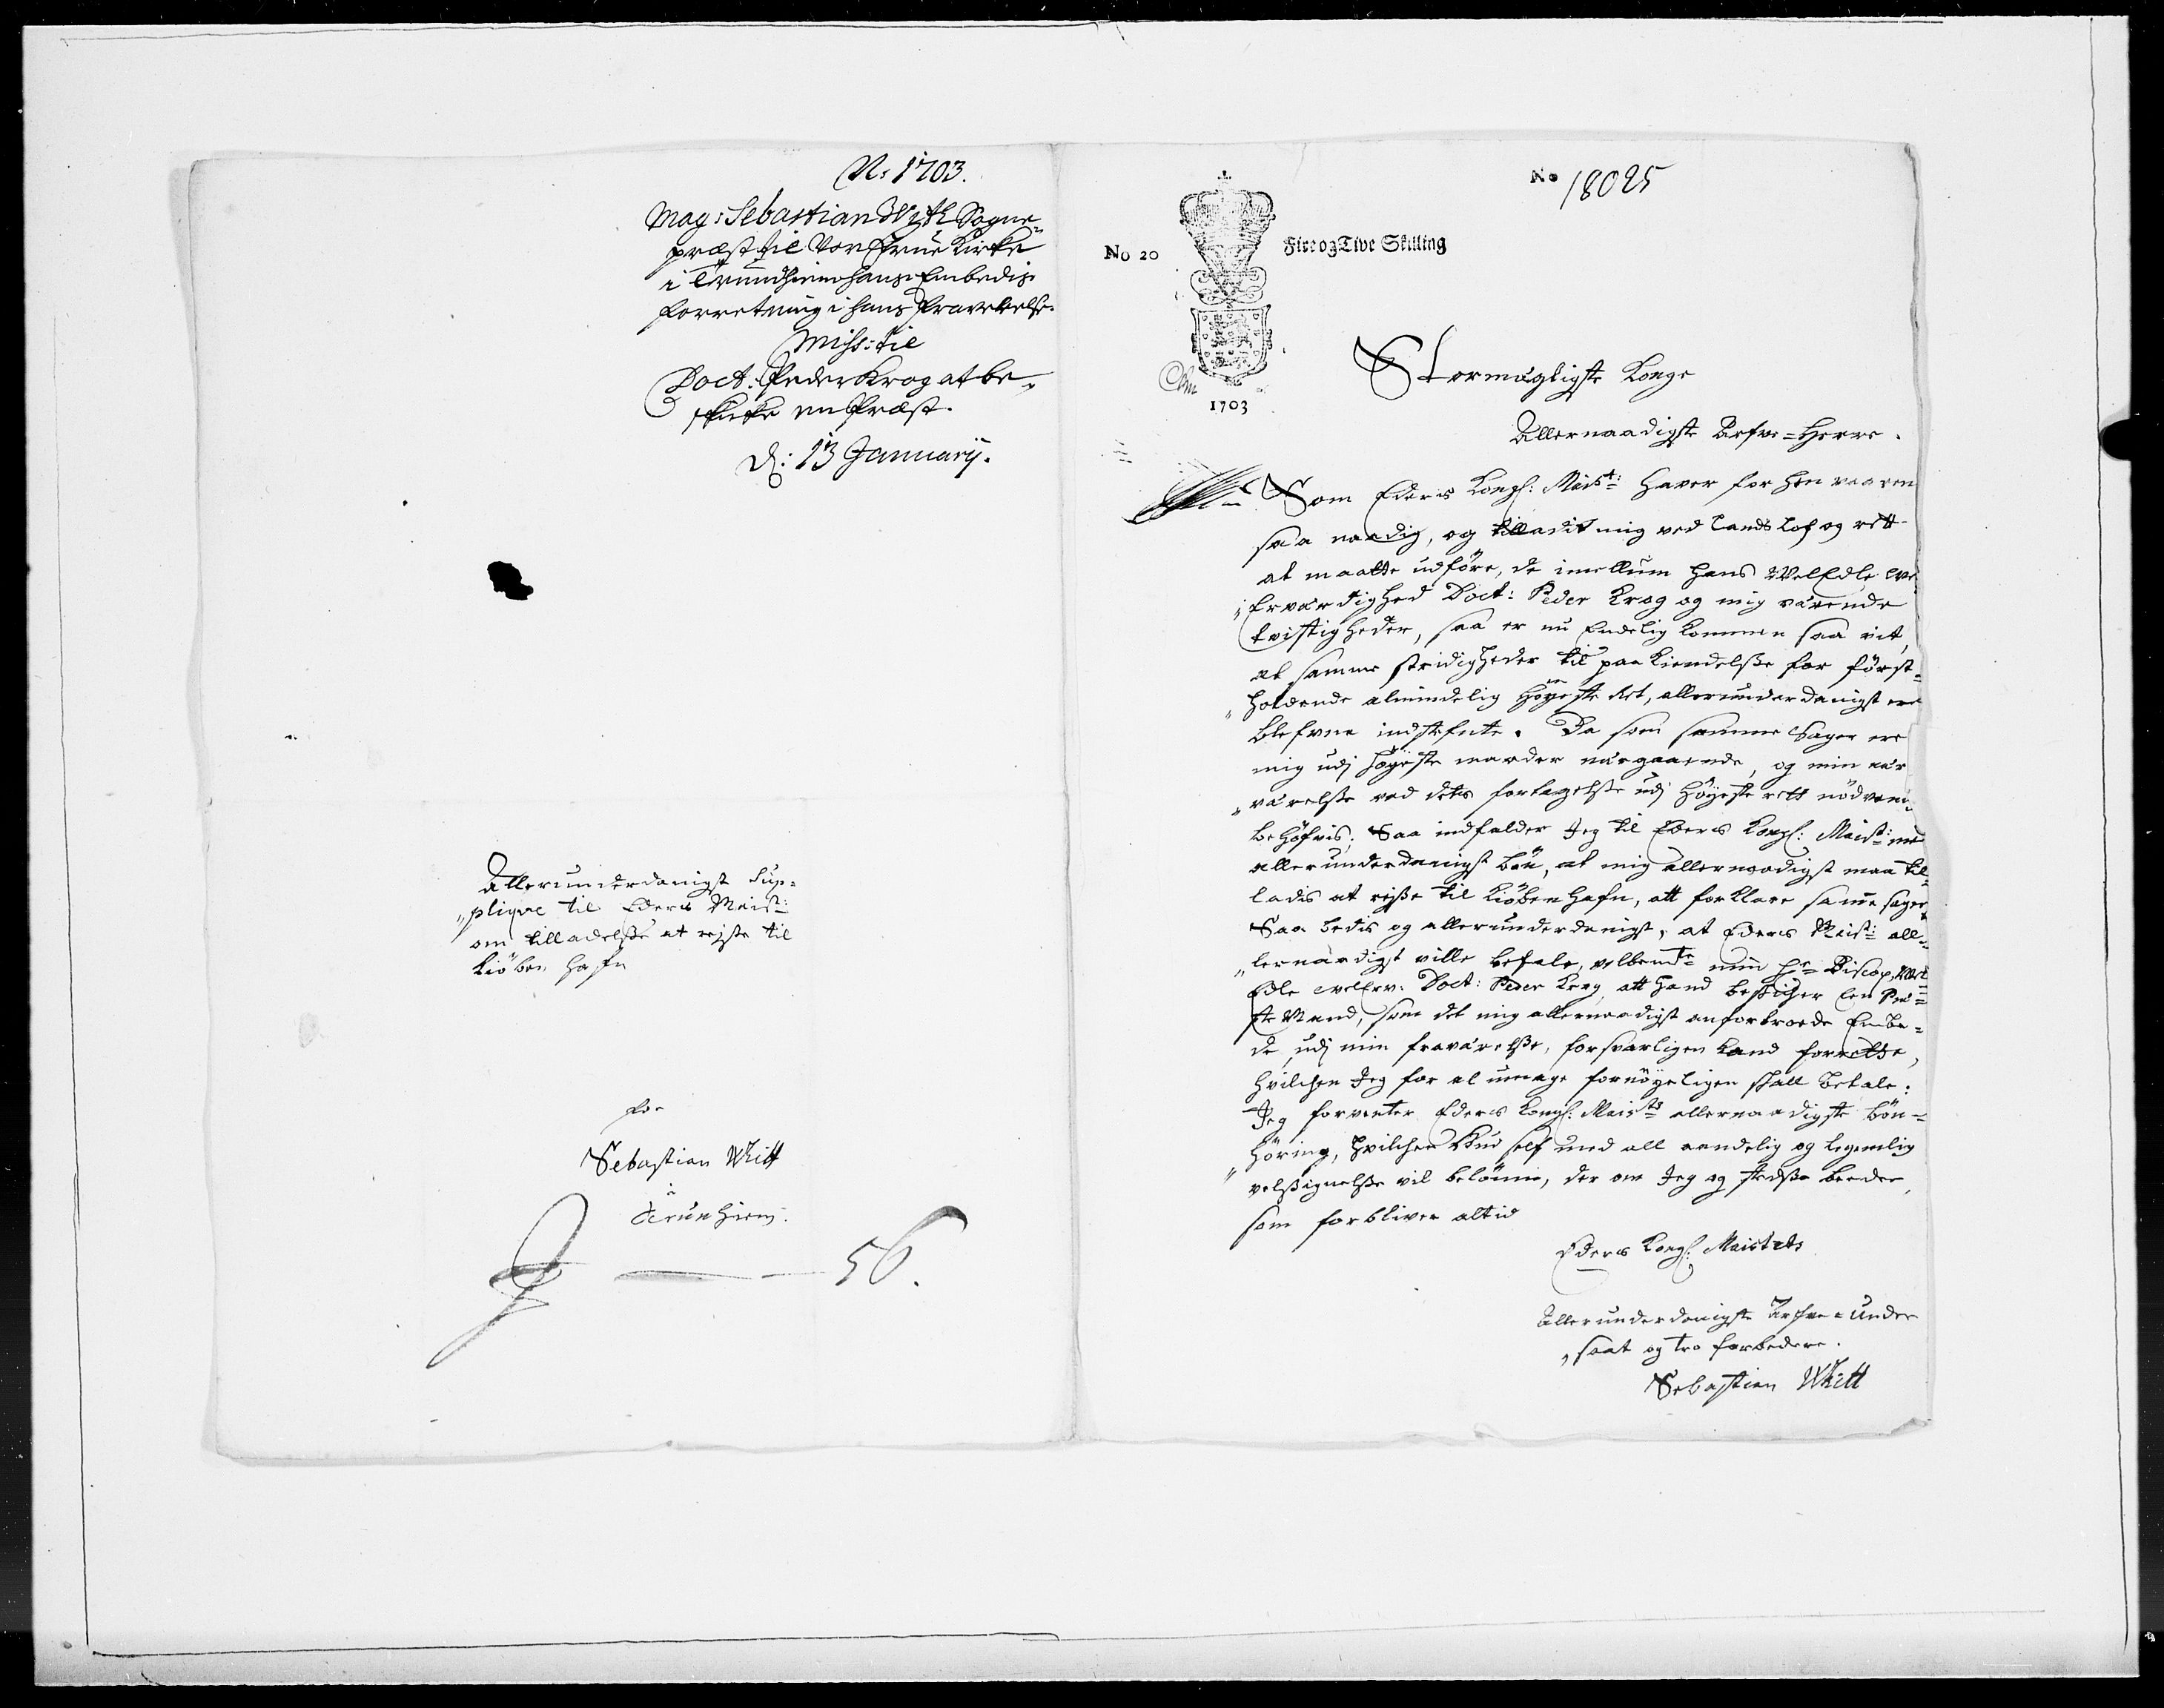 N: 1703.
Mag: Sebastian With Sogne
præst til Vor Frue Kirke
i Trundhiem hans Embedis
forretning i hans fraværelse.
Miss: til
Doct: Peder Krog at be-
skicke en Præst.
D: 13 Januarij.
Allerunderdanigst Sup-
plique til Eders Maist:
om tilladelsse at rejse til
Kiöbenhafn
for
Sebastian Whitt
i
Trunhiem.
56.
No 18025
No 20
Fire og Tive Skilling
1703
Stormägtigste Konge
Allernaadigste Arfve-Herre.
Som Eders Kongl: Maist: haver for hen vaaren
saa naadig, og tilladit mig ved Lands Lof og rett
at maatte udföre, de imellum hans WelEdle
Ervärdighed Doct: Peder Krog og mig värende
tvistigheder, saa er nu Endelig kommen saa vit,
at samme stridigheder til paakiendelsse for först-
holdende almindelig Höyeste Ret, allerunderdanigst ere
blefven indstefnte. Da som samme Sager ere
mig udj högeste maader närgaaende, og min när
värelsse ved dets fortagelsse udj höyeste rett nödven
behöfvis; Saa indfalder Jeg til Eders Kongl: Maist: med
allerunderdanigst bön, at mig allernaadigst maa til-
ladis at rejse til Kiöbenhafn, att forklare samme sager
Saa bedis og allerunderdanigst, at Eders Maist: all-
ernaadigst ville befale, velbemte min Hr Biscop, Wel
Edle Doct: Peder Krog att hand beskicher Een Præ-
ste Mand, som det mig allernaadigst anfortroede Embe-
de udj min fraværelsse, forsvarligen kand forrette,
hvilchen Jeg for al umage fornöyeligen skall betale.
Jeg forventer Eders Kongl: Maists allernaadigste bön-
höring, hvilchen Gud self med all aandelig og legemlig
velsignelsse vil belönne, der om Jeg og stedsse beeder,
som forbliver altid
Eders Kongl: Maistets
Allerunderdanigste Arfve-Under
saat og tro forbedere.
Sebastian Whitt